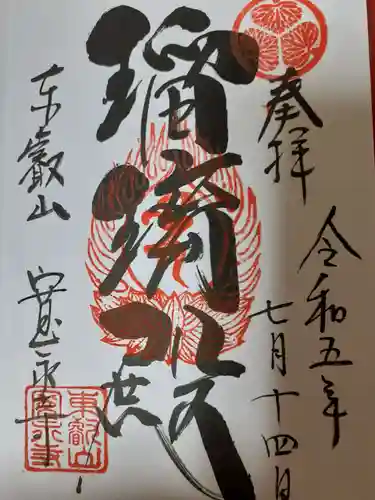 奉拝
令和五年
七月十四日
瑠璃殿
東叡山 寛永寺
東叡山
寛永寺